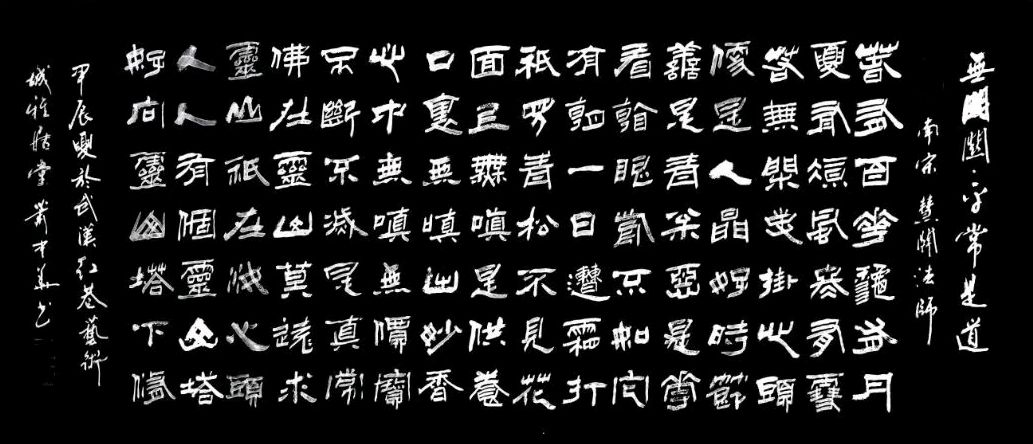 無門關·平常是道
南宋 慧開法師
春有百花龝有月
夏有涼風冬有雪
若無閑事掛心頭
便是人間好時節
善是青松惡是花
看眼前不如它
有朝一日遭霜打
祇見青松不見花
面上無嗔是供養
口裏無嗔出妙香
心中無嗔無價寶
不斷不滅是真常
佛在靈山莫遠求
靈山祇在汝心頭
人人有個靈山塔
好向靈山塔下修
甲辰夏於武漢紅巷藝術
城堂